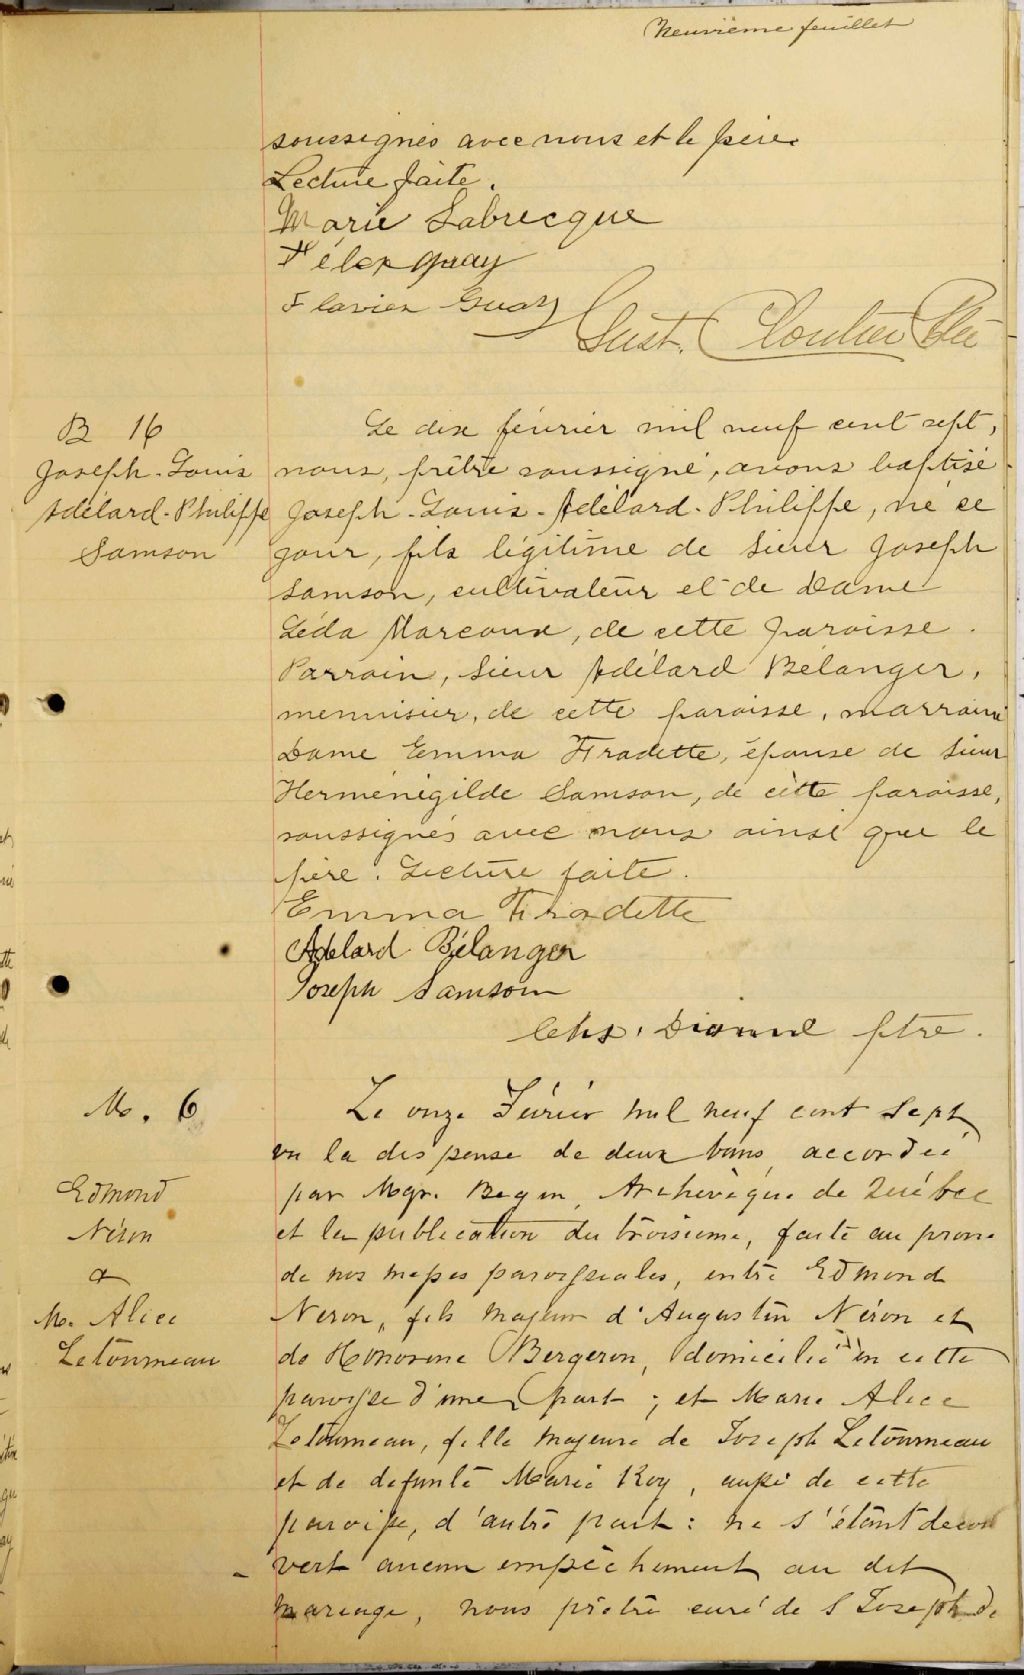 Neuvième feuillet
soussignés avec nous et le père.
Lecture faite.
Marie Labrecque
Félix Guay
Flavien Guay
Gust. Cloutier Ptre
B 16
Joseph-Louis
Adélard-Philippe
Samson
Le dix février mil neuf cent sept,
nous, prêtre soussigné, avons baptisé
Joseph-Louis-Adélard-Philippe, né ce
jour, fils légitime de Sieur Joseph
Samson, cultivateur et de Dame
Léda Marcoux, de cette paroisse.
Parrain, Sieur Adélard Bélanger,
menuisier, de cette paroisse, marraine
Dame Emma Fradette, épouse de Sieur
Herménégilde Samson, de cette paroisse,
soussignés avec nous ainsi que le
père. Lecture faite.
Emma Fradette
Adelard Bélanger
Joseph Samson
Chs. Dionne ptre.
M. 6
Edmond
Néron
&
M. Alice
Letourneau
Le onze Février mil neuf cent sept
vu la dispense de deux bans accordée
par Mgr. Begin, Archevêque de Québec
et la publication du troisième, faite au prone
de nos messes paroissiales, entre Edmond
Neron, fils majeur d'Augustin Néron et
de Honorine Bergeron, domicilié en cette
paroisse d'une part; et Marie Alice
Letourneau, fille majeure de Joseph Letourneau
et de defunte Marie Roy, aussi de cette
paroisse, d'autre part: ne s'étant décou
vert aucun empêchement au dit
mariage, nous prêtre curé de S Joseph de